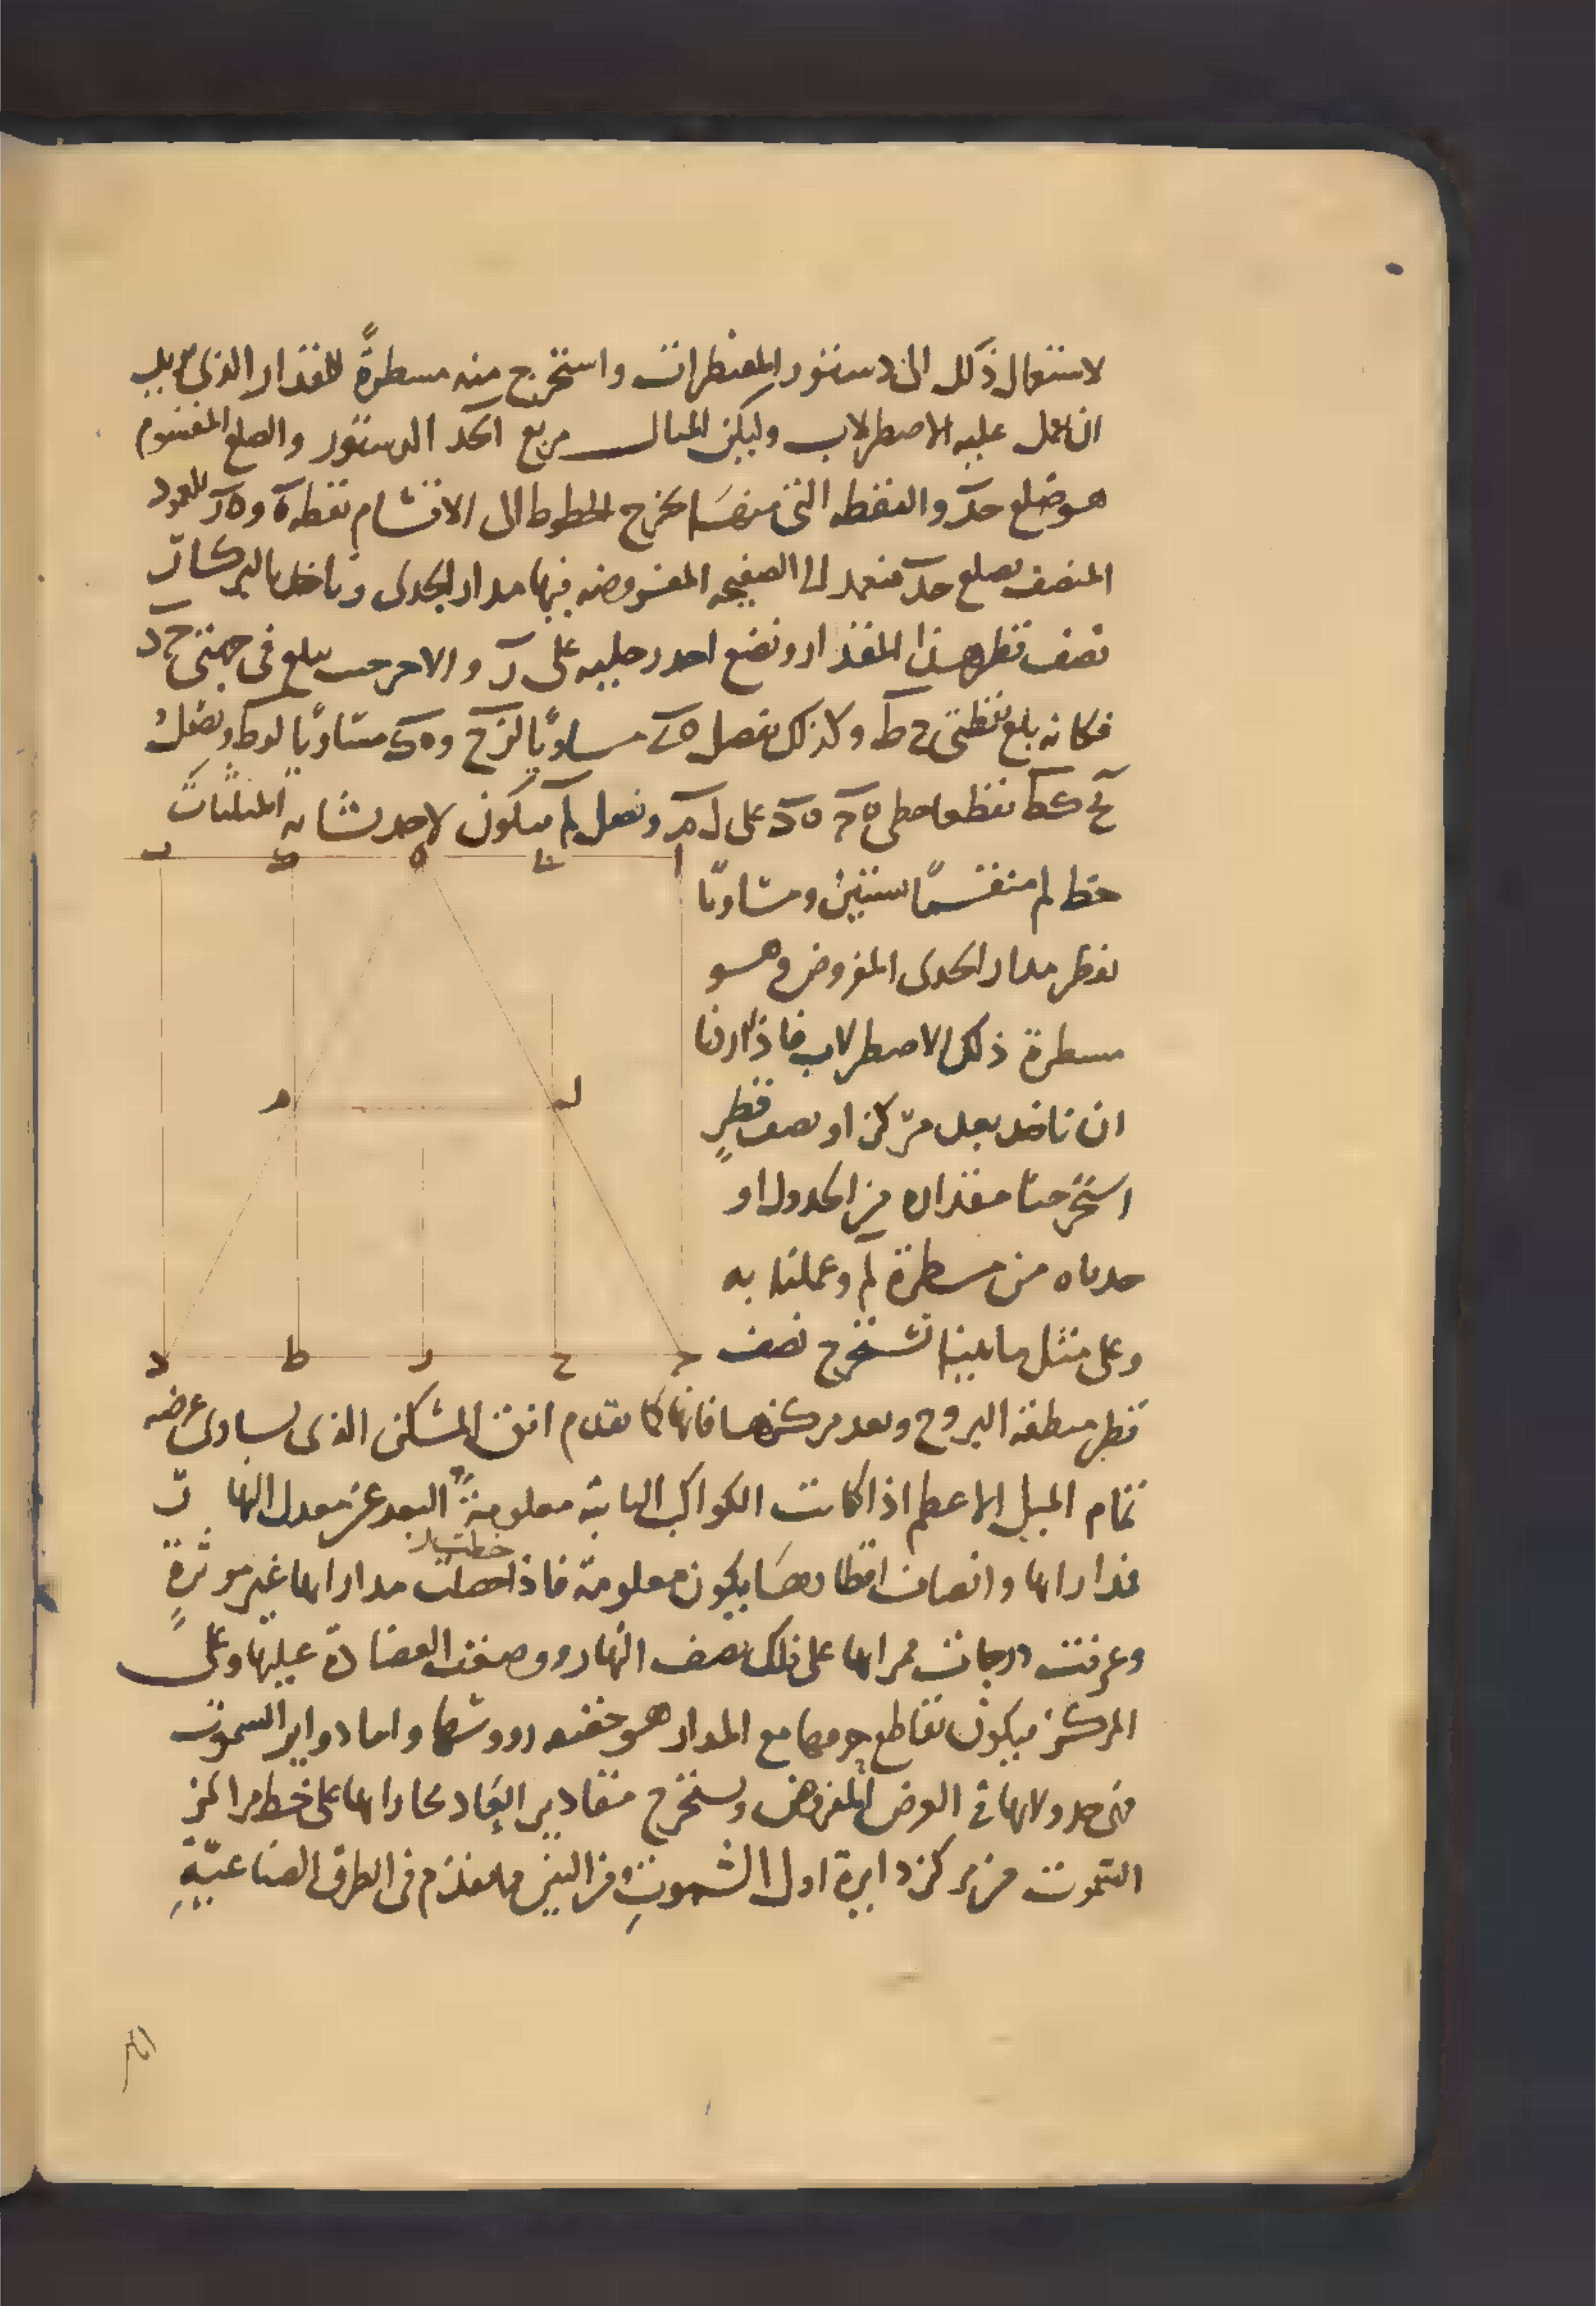 لاستعمال ذلك الى دستور المقنطرات واستخرج منه مسطرةً للمقدار الذى
ان اعمل عليه الاصطرلاب وليكن المثال مربع الدستور والضلع المقسوم
هو ضلع حد والنقطه التى منها تخرج الخطوط الى الاقسام نقطه ه و ه ر العمود
المنصف لضلع حد فنعمد الى الصفيحه المفروضه فيها مدار الجدى وناخذ بالبركار
نصف قطر هذا المقدار ونضع احد رجليه على ر والاخر حيث يبلغ فى جهتى ح د
فكانه بلغ نقطتى ح ط وكذلك نفصل مساويًا لرح و ه ى مساويًا لرط ونصل
نقطعا خطى ه ح ه د على ل م ونصل لم فيكون لاجل تشابه المثلثات
ا
ه
ب
خط لم منقسمًا بستين ومساويًا
لقطر مدار الجدى المفروض وهو
مسطرة ذلك الاصطرلاب فاذا اردنا
ل
م
ان ناخذ بعد مركز او نصف قطرٍ
استخرجنا مقداره من الجدول او
اخذناه من مسطرة لم وعملنا به
وعلى مثل ما بينا نستخرج نصف
ح
ح
ر
ط
د
قطر منطقه البروج وبعد مركزها فانها كما تقدم افق المسكن الذى يساوى عرضه
تمام الميل الاعظم اذا كانت الكواكب الثابتة معلومةً البعد عن معدل النهار
فمداراتها وانصاف اقطارها يكون معلومة فاذا مداراتها غير موثرةٍ
وعرفت درجات ممراتها على فلك نصف النهار ووضعت العضادة عليها وعلى
المركز فيكون تقاطع حرفها مع المدار هو واما دواير السموت
العرض المفروض ونستخرج مقادير ابعاد على خط مراكز
السموت من مركز دايرة اول السموتِ فى الطرق الصناعيّةِ